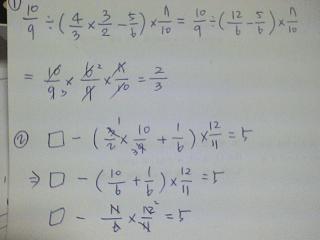 ① 10/9 ÷ (4/3 × 3/2 − 5/6) × 7/10 = 10/9 ÷ (12/6 − 5/6) × 7/10
= 10/9 3 × 6 2/7 × 7/10 = 2/3
② □ − (3 1/2 × 10/9 3 + 1/6) × 12/11 = 5
⇒ □ − (10/6 + 1/6) × 12/11 = 5
□ − 11/6 × 12 2/11 = 5